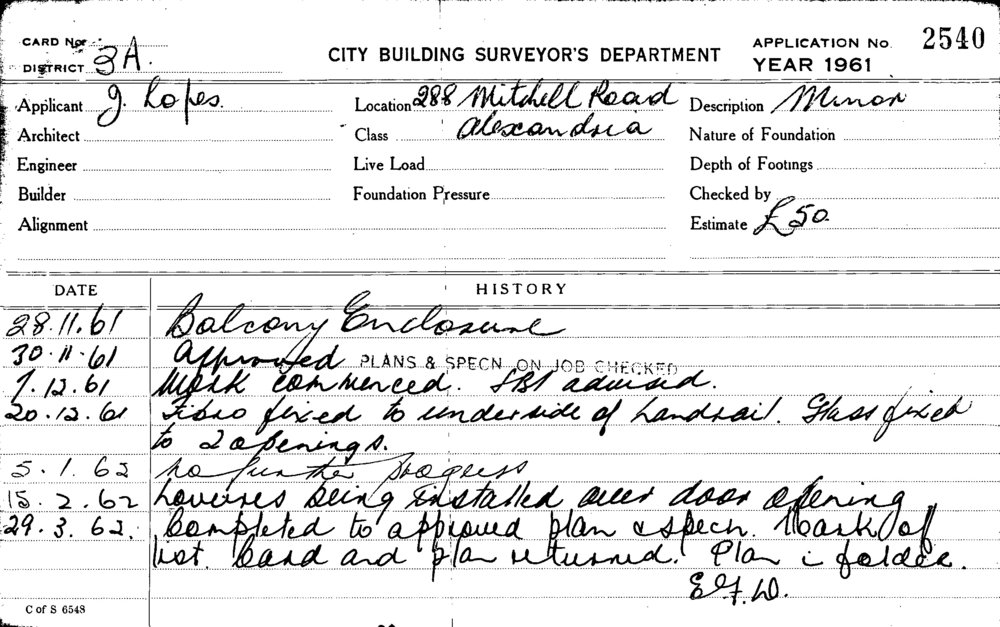 CARD No.
DISTRICT 3A.
CITY BUILDING SURVEYOR'S DEPARTMENT
APPLICATION No. 2540
YEAR 1961
Applicant J. Lopes.
Location 288 Mitchell Road
Alexandria
Description Minor
Architect
Class
Nature of Foundation
Engineer
Live Load
Depth of Footings
Builder
Foundation Pressure
Checked by
Alignment
Estimate £50.
DATE HISTORY
28.11.61 Balcony Enclosure
30.11.61 Approved PLANS & SPECN ON JOB CHECKED
7.12.61 Work commenced. advised.
20.12.61 Fibro fixed to underside of handrail. Glass fixed
to 2 openings.
5.1.62 No further progress
15.2.62 Louvres being installed over door opening
29.3.62. Completed to approved plan & specn. Mark of
list. Card and plan returned. Plan in folder.
E.F.W.
C of S 6548